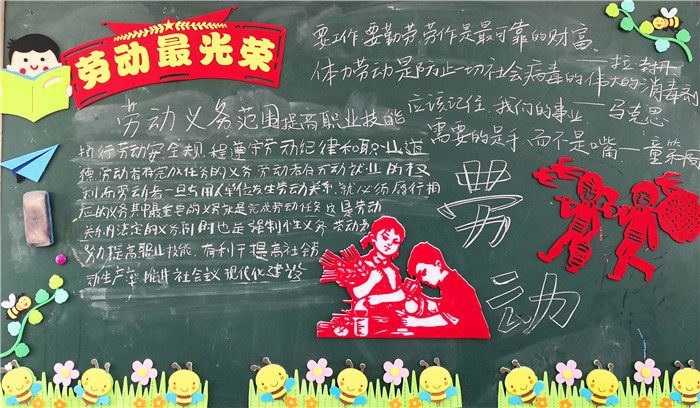 劳动最光荣
要工作要勤劳劳作是最可靠的财富。
体力劳动是防止一切社会病毒的伟大的消毒剂
应该记住 我们的事业 — 马克思
需要的是手 而不是嘴
劳动义务范围提高职业技能
执行劳动安全规程遵守劳动纪律和职业道
德 劳动者有完成任务的义务 劳动者有劳动就业的权
利而劳动者一旦与用人单位发生劳动关系 就必须履行相
应的义务其中最重要的义务就是完成劳动任务这是劳动
关系内法定的义务同时也是强制性义务 劳动者
努力提高职业技能 有利于提高社会劳
动生产率推进社会主义现代化建设
劳
动